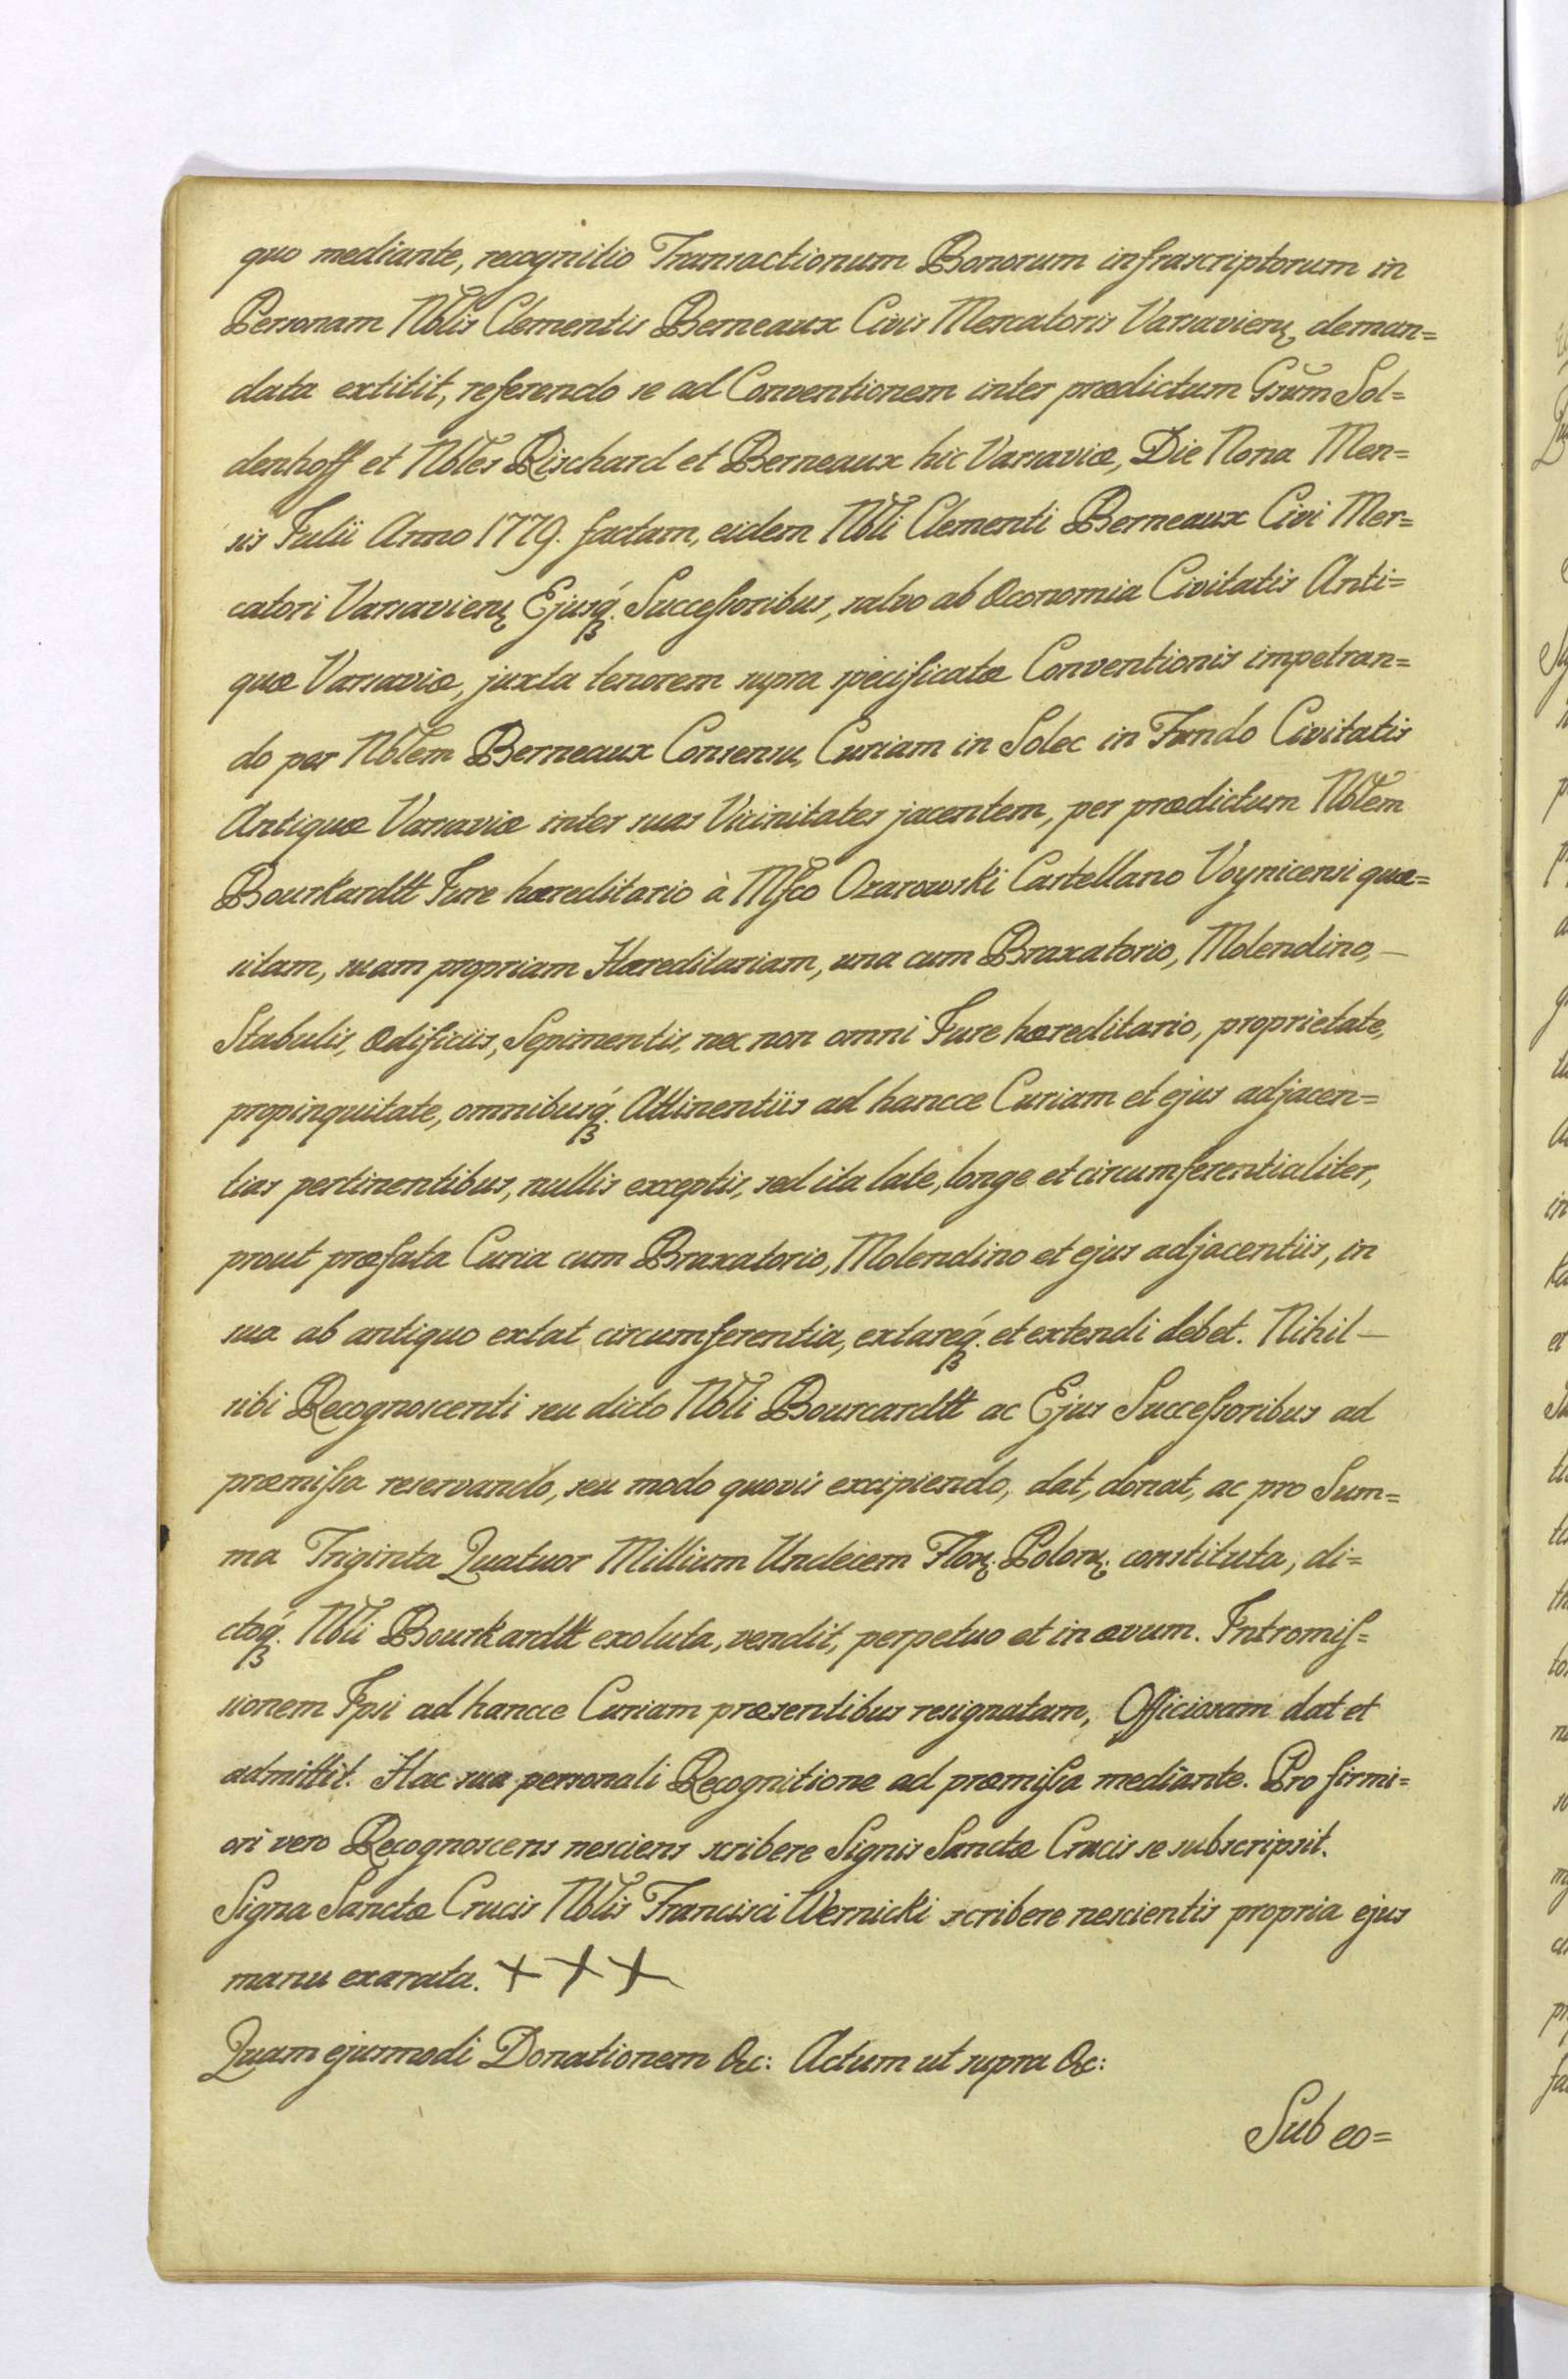 quo mediante, recognitio Transactionum Bonorum infrascriptorum in
Personam Nblis Clementis Berneaux Civis Mercatoris Varsavien, deman=
data extitit, referendo se ad Conventionem inter prædictum Grum Sol=
denhoff et Nbles Rischard et Berneaux hic Varsaviæ, Die Nona Men=
sis Julii Anno 1779. factam, eidem Nbli Clementi Berneaux Civi Mer=
catori Varsavien, Ejusq́. Succeſsoribus, salvo ab Œconomia Civitatis Anti=
quæ Varsaviæ, juxta tenorem supra specificatæ Conventionis impetran=
do per Nblem Berneaux Consensu, Curiam in Solec in Fundo Civitatis
Antiquæ Varsaviæ inter suas Vicinitates jacentem, per prædictum Nblem
Bourkardtt Jure hæreditario à Mfco Ozarowski Castellano Voynicensi quæ=
sitam, suam propriam Hæreditariam, una cum Braxatorio, Molendino, —
Stabulis, Ædificiis, Sepimentis, nec non omni Jure hæreditario, proprietate,
propinquitate, omnibusq́. Attinentiis ad hancce Curiam et ejus adjacen=
tias pertinentibus, nullis exceptis, sed ita late, longe et circumferentialiter,
prout præfata Curia cum Braxatorio, Molendino et ejus adjacentiis, in
sua ab antiquo extat circumferentia, extareq́. et extendi debet. Nihil —
sibi Recognoscenti seu dicto Nbli Bourcardtt ac Ejus Succeſsoribus ad
præmiſsa reservando, seu modo quovis excipiendo, dat, donat, ac pro Sum=
ma Triginta Quatuor Millium Undecem Flor. Polon. constituta, di=
ctoq́. Nbli Bourkardtt exoluta, vendit, perpetuo et in ævum. Intromiſ=
sionem Ipsi ad hancce Curiam præsentibus resignatam, Officiosam dat et
admittit. Hac sua personali Recognitione ad præmiſsa mediante. Pro firmi=
ori vero Recognoscens nesciens scribere Signis Sanctæ Crucis se subscripsit.
Signa Sanctæ Crucis Nblis Francisci Wernicki scribere nescientis propria ejus
manu exarata. + + +
Quam ejusmodi Donationem &c: Actum ut supra &c:
Sub eo=